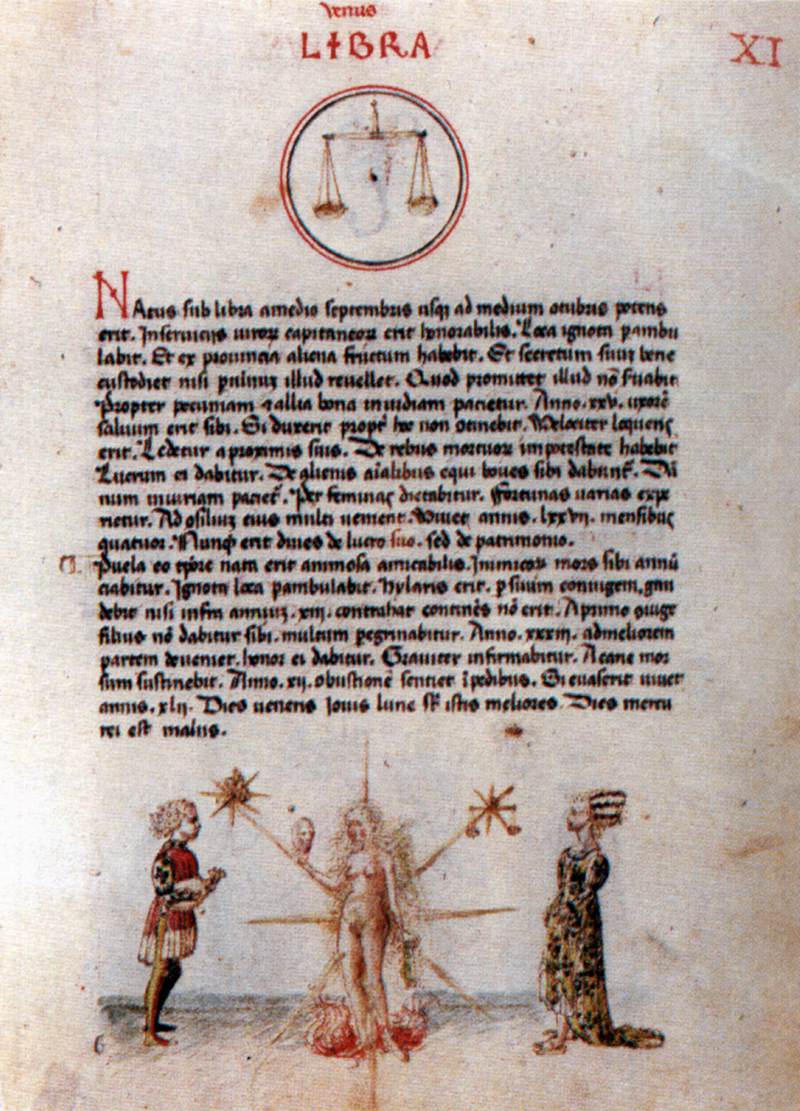 Venus
LIBRA
XI
NAtus sub libra a medio septembris usqȝ ad medium otubris potens
erit. Inseruiens uiroꝝ capitaneoꝝ erit honorabilis. Loca ignota pambu
labit. Et ex prouincia aliena fructum habebit. Et secretum suuȝ bene
custodiet nisi illud reuellet. Quod promittet illud nō
Propter pecuniam ⁊ allia bona inuidiam pacietur. Anno. xxv. uxorē
saluum erit sibi. Si duxerit hoc non optinebit. Uelociter loquens
erit. Ledetur a proximis suis. De rebus mortuoꝝ in potestate habebit
Lucrum ei dabitur. De alienis aīalibus equi boues sibi dabunt̄. Dā
num iniuriam paciet̄. Per feminas dictabitur. Fortunas uarias expe
rietur. Ad osiliuȝ eius multi uenient. Uiuet annis. lxxvij. mensibus
quatuor. Nunqȝ erit diues de lucro suo. sed de patrimonio.
Puela eo tp̄re nata erit animosa amicabilis. Inimicoꝝ mors sibi annū
ciabitur. Ignota loca pambulabit. hylaris erit. p suum coniugem. gau
debit nisi infra annuȝ. xiij. contrahat continēs nō erit. A primo ɔiuge
filius nō dabitur sibi. multum pegrinabitur. Anno. xxxiij. ad meliorem
partem deueniet. honor ei dabitur. Grauiter infirmabitur. A cane mor
sum sustinebit. Anno. xij. obustionē sentiet ī pedibus. Si euaserit uiuet
annis. xlij. Dies ueneris Jouis lune st̄ istis meliores. Dies mercu
rei est malus.
6